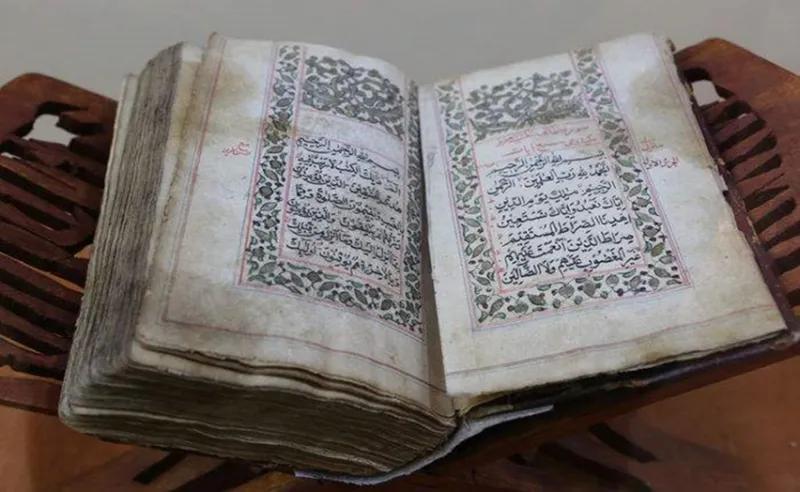 سبع آيات
بسم الله الرحمن الرحيم
الحمد لله رب العلمين الرحمن
الرحيم ملك يوم الدين
اياك نعبد واياك نستعين
اهدنا الصراط المستقيم
صراط الذين انعمت عليهم
غير المغضوب عليهم ولا الضالين
الجزء الاول
بسم الله الرحمن الرحيم
الم ذلك الكتب لا ريب فيه
هدى للمتقين الذين يؤمنون
بالغيب ويقيمون الصلوة ومما
رزقنهم ينفقون والذين يؤمنون
بما انزل اليك وما انزل من قبلك
وبالاخرة هم يوقنون اولئك